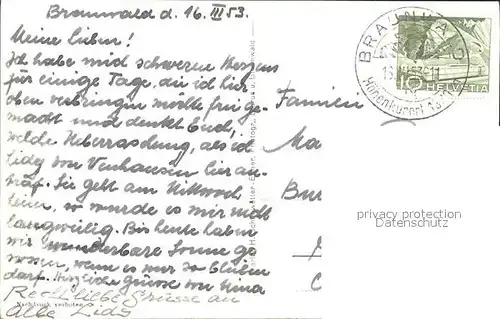 Braunwald d. 16. III 53.
Meine Lieben!
Ich habe mich schweren Herzens
für einige Tage, die ich hier
oben verbringen möchte frei ge-
macht und denkt Euch,
welche Ueberraschung, als ich
Lidy von
traf. Sie geht am Mittwoch
heim, so wurde es mir nicht
langweilig. Bis heute haben
wir wunderbare Sonne ge
nossen, wenn es nur so bleiben
darf. Herzliche Grüsse von Nina
Recht liebe Grüsse an
Alle Lidy
Nachdruck verboten
Familien
BRAUNWALD
Höhenkurort
HELVETIA
10
privacy protection
Datenschutz